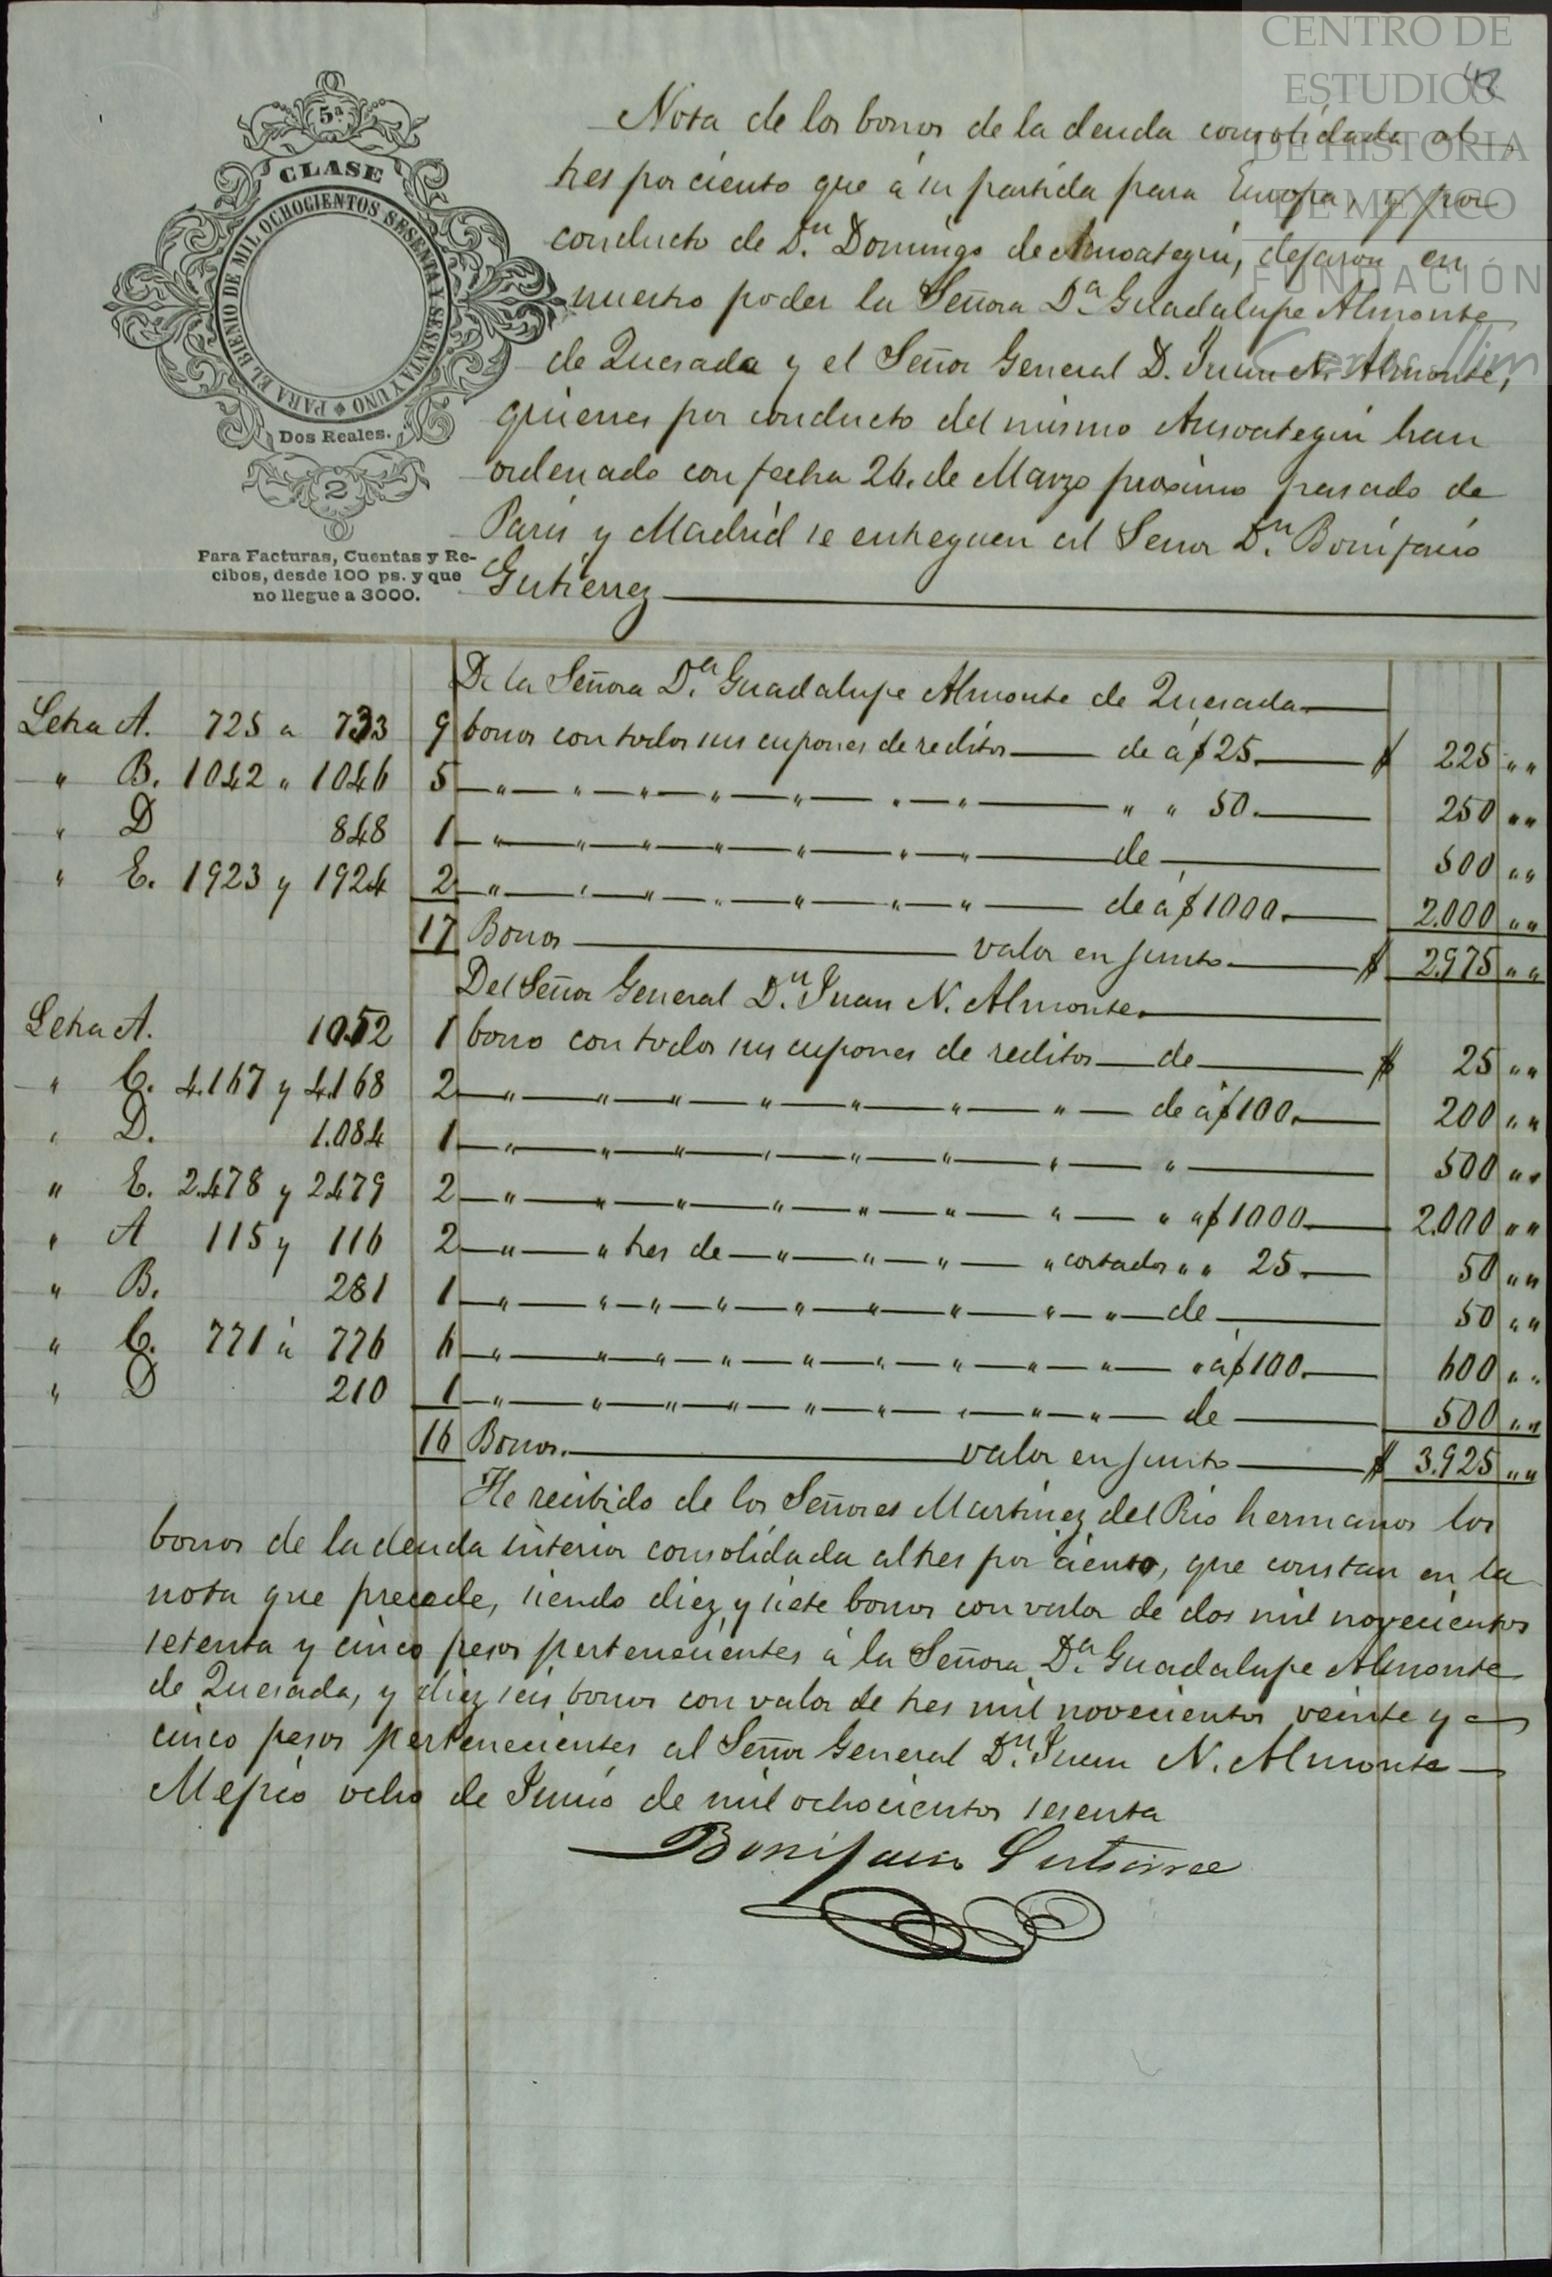 CENTRO DE
ESTUDIOS
DE HISTORIA
DE MÉXICO
FUNDACIÓN
Carlos Slim
42
5ª
CLASE
PARA EL BIENIO DE MIL OCHOCIENTOS SESENTA Y SESENTA Y UNO
Dos Reales.
2
Para Facturas, Cuentas y Re-
cibos, desde 100 ps. y que
no llegue a 3000.
Nota de los bonos de la deuda consolidada al
tres por ciento que á su partida para Europa, y por
conducto de Dn. Domingo de Ansoategui, dejaron en
nuestro poder la Señora Da. Guadalupe Almonte
de Quesada y el Señor General D. Juan N. Almonte,
quienes por conducto del mismo Ansoategui han
ordenado con fecha 26. de Marzo proximo pasado de
Paris y Madrid se entreguen al Señor Dn. Bonifacio
Gutierrez
De la Señora Da. Guadalupe Almonte de Quesada
Letra A. 725 a 733 9 bonos con todos sus cupones de reditos de á $25. $ 225 " "
" B. 1042 " 1046 5 " " " " " " " " " 50. 250 " "
" D 848 1 " " " " " " " de 500 " "
" E. 1923 y 1924 2 " " " " " " " de á $1000. 2.000 " "
17 Bonos valor en junto $ 2.975 " "
Del Señor General Dn. Juan N. Almonte.
Letra A. 1052 1 bono con todos sus cupones de reditos de $ 25 " "
" C. 4.167 y 4.168 2 " " " " " " " de á $100. 200 " "
" D. 1.084 1 " " " " " " " " 500 " "
" E. 2.478 y 2.479 2 " " " " " " " " á $1000. 2.000 " "
" A 115 y 116 2 " " tres de " " " " cortados " " 25. 50 " "
" B. 281 1 " " " " " " " " " de 50 " "
" C. 771 á 776 6 " " " " " " " " " " á $100. 600 " "
" D 210 1 " " " " " " " " " de 500 " "
16 Bonos. valor en junto $ 3.925 " "
He recibido de los Señores Martinez del Rio hermanos los
bonos de la deuda interior consolidada al tres por ciento, que constan en la
nota que precede, siendo diez y siete bonos con valor de dos mil novecientos
setenta y cinco pesos pertenecientes á la Señora Da. Guadalupe Almonte
de Quesada, y diez seis bonos con valor de tres mil novecientos veinte y
cinco pesos pertenecientes al Señor General Dn. Juan N. Almonte
Mejico ocho de Junio de mil ochocientos sesenta
Bonifacio Gutierrez